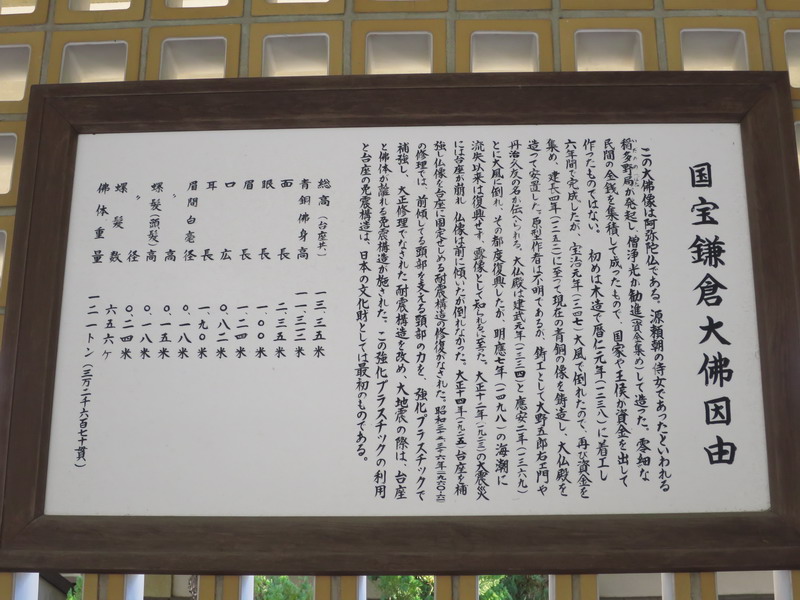 国宝鎌倉大佛因由
この大佛像は阿弥陀仏である。源頼朝の侍女であったといわれる
稲多野局が発起し、僧浄光が勧進(資金集め)して造った。零細な
民間の金銭を集積して成ったもので、国家や王侯が資金を出して
作ったものではない。 初めは木造で暦仁元年(一二三八)に着工し
六年間で完成したが、宝治元年(一二四七)大風で倒れたので、再び資金を
集め、建長四年(一二五二)に至って現在の青銅の像を鋳造し、大仏殿を
造って安置した。原型作者は不明であるが、鋳工として大野五郎右エ門や
丹治久友の名が伝へられる。大仏殿は建武元年(一三三四)と應安二年(一三六九)
とに大風に倒れ、その都度復興したが、明應七年(一四九八)の海潮に
流失以来は復興せず、露像として知られるに至った。大正十二年(一九二三)の大震災
には台座が崩れ 仏像は前に傾いたが倒れなかった。大正十四年(一九二五)台座を補
強し仏像を台座に固定せしめる耐震構造の修復がなされた。昭和三五・三六年(一九六〇・六一)
の修理では、前傾してる頭部を支える頸部の力を、強化プラスチックで
補強し、大正修理でなされた耐震構造を改め、大地震の際は、台座
と佛体が離れる免震構造が施された。この強化プラスチックの利用
と台座の免震構造は、日本の文化財としては最初のものである。
総高(台座共) 一三、三五米
青銅佛身高 一一、三一二米
面長 二、三五米
眼長 一、〇〇米
眉長 一、二四米
口広 〇、八二米
耳長 一、九〇米
眉間白毫径 〇、一八米
〃 高 〇、一五米
螺髪(頭髪)高 〇、一八米
〃 径 〇、二四米
螺髪数 六五六ケ
佛体重量 一二一トン(三万二千六百七十貫)